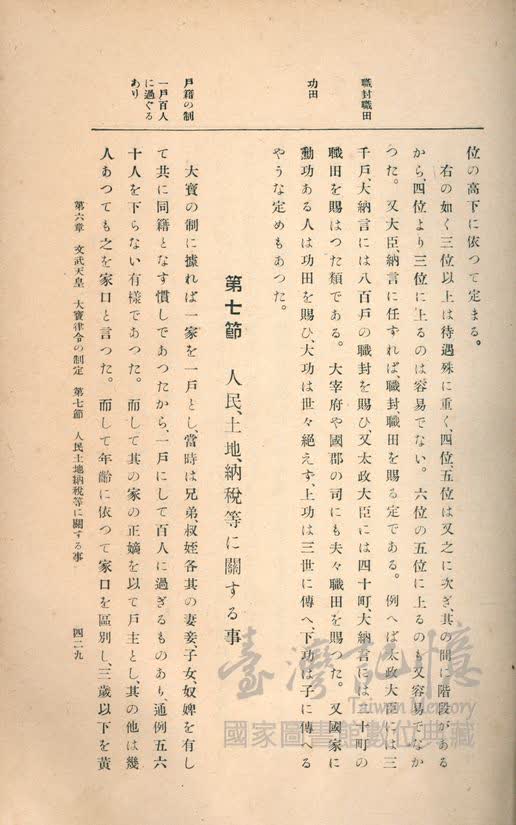 位の高下に依つて定まる。
右の如く三位以上は待遇殊に重く、四位、五位は又之に次ぎ、其の間に階段がある
から、四位より三位に上るのは容易でない。六位の五位に上るのも又容易でなか
つた。又大臣、納言に任ずれば、職封、職田を賜る定である。例へば太政大臣には三
千戸、大納言には八百戸の職封を賜ひ、又太政大臣には四十町、大納言には二十町の
職田を賜はつた類である。大宰府や國郡の司にも夫々職田を賜つた。又國家に
勳功ある人は功田を賜ひ、大功は世々絕えず、上功は三世に傳へ、下功は子に傳へる
やうな定めもあつた。
職封職田
功田
第七節 人民、土地、納稅等に關する事
大寶の制に據れば一家を一戸とし、當時は兄弟、叔姪各其の妻妾、子女、奴婢を有し
て共に同籍となす慣しであつたから、一戸にして百人に過ぎるものあり、通例五六
十人を下らない有樣であつた。而して其の家の正嫡を以て戸主とし、其の他は幾
人あつても之を家口と言つた。而して年齡に依つて家口を區別し、三歲以下を黃
戸籍の制
一戸百人
に過ぐる
あり
第六章 文武天皇 大寶律令の制定 第七節 人民土地納稅等に關する事
四二九
臺灣記憶
Taiwan Memory
國家圖書館數位典藏